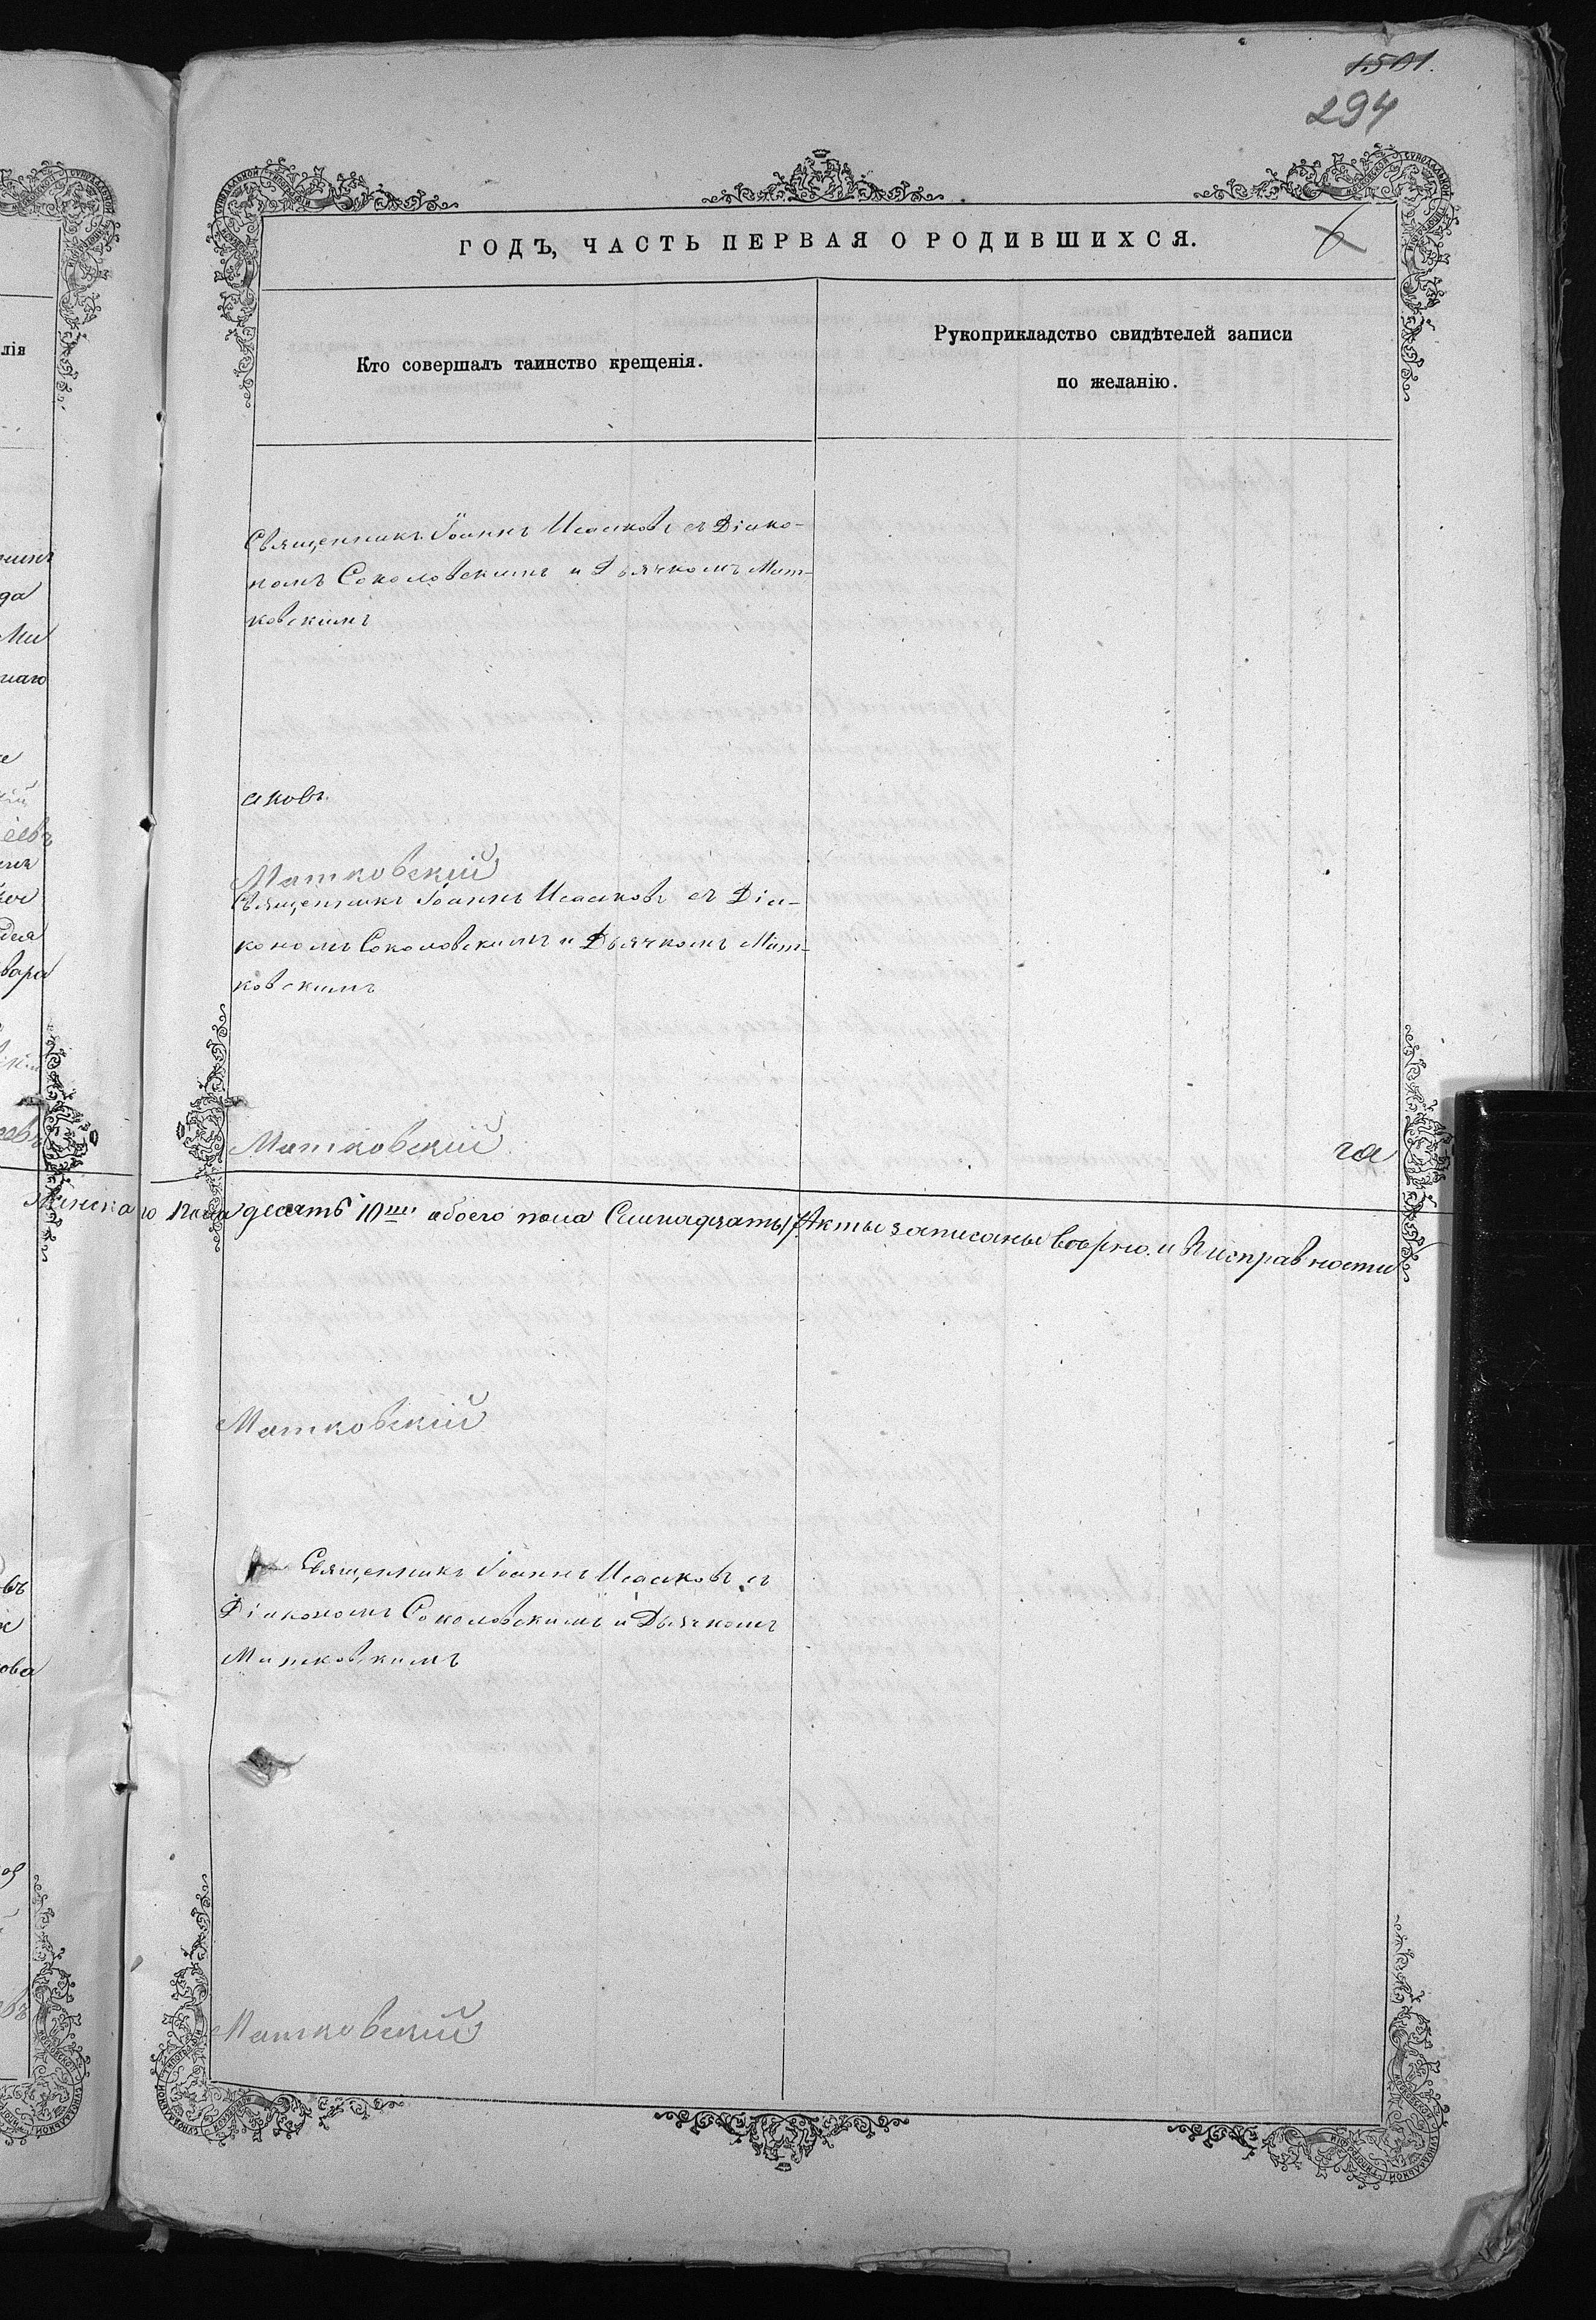 1501.
294
ГОДЪ, ЧАСТЬ ПЕРВАЯ О РОДИВШИХСЯ.
6
Кто совершалъ таинство крещенія.
Рукоприкладство свидѣтелей записи
по желанію.
лія
Священникъ Іоаннъ Исааковъ съ Діако-
номъ Соколовскимъ и Дьячкомъ Мат-
ковскимъ
аковъ.
Матковскій
Священникъ Іоаннъ Исааковъ съ Діа-
кономъ Соколовскимъ и Дьячкомъ Мат-
ковскимъ
Матковскій
га
женскаго пола десять 10ть обоего пола Семнадцать 17. Акты записаны вѣрно и в исправности
Матковскій
Священникъ Іоаннъ Исааковъ съ
Діакономъ Соколовскимъ и Дьячкомъ
Матковскимъ
Матковскій